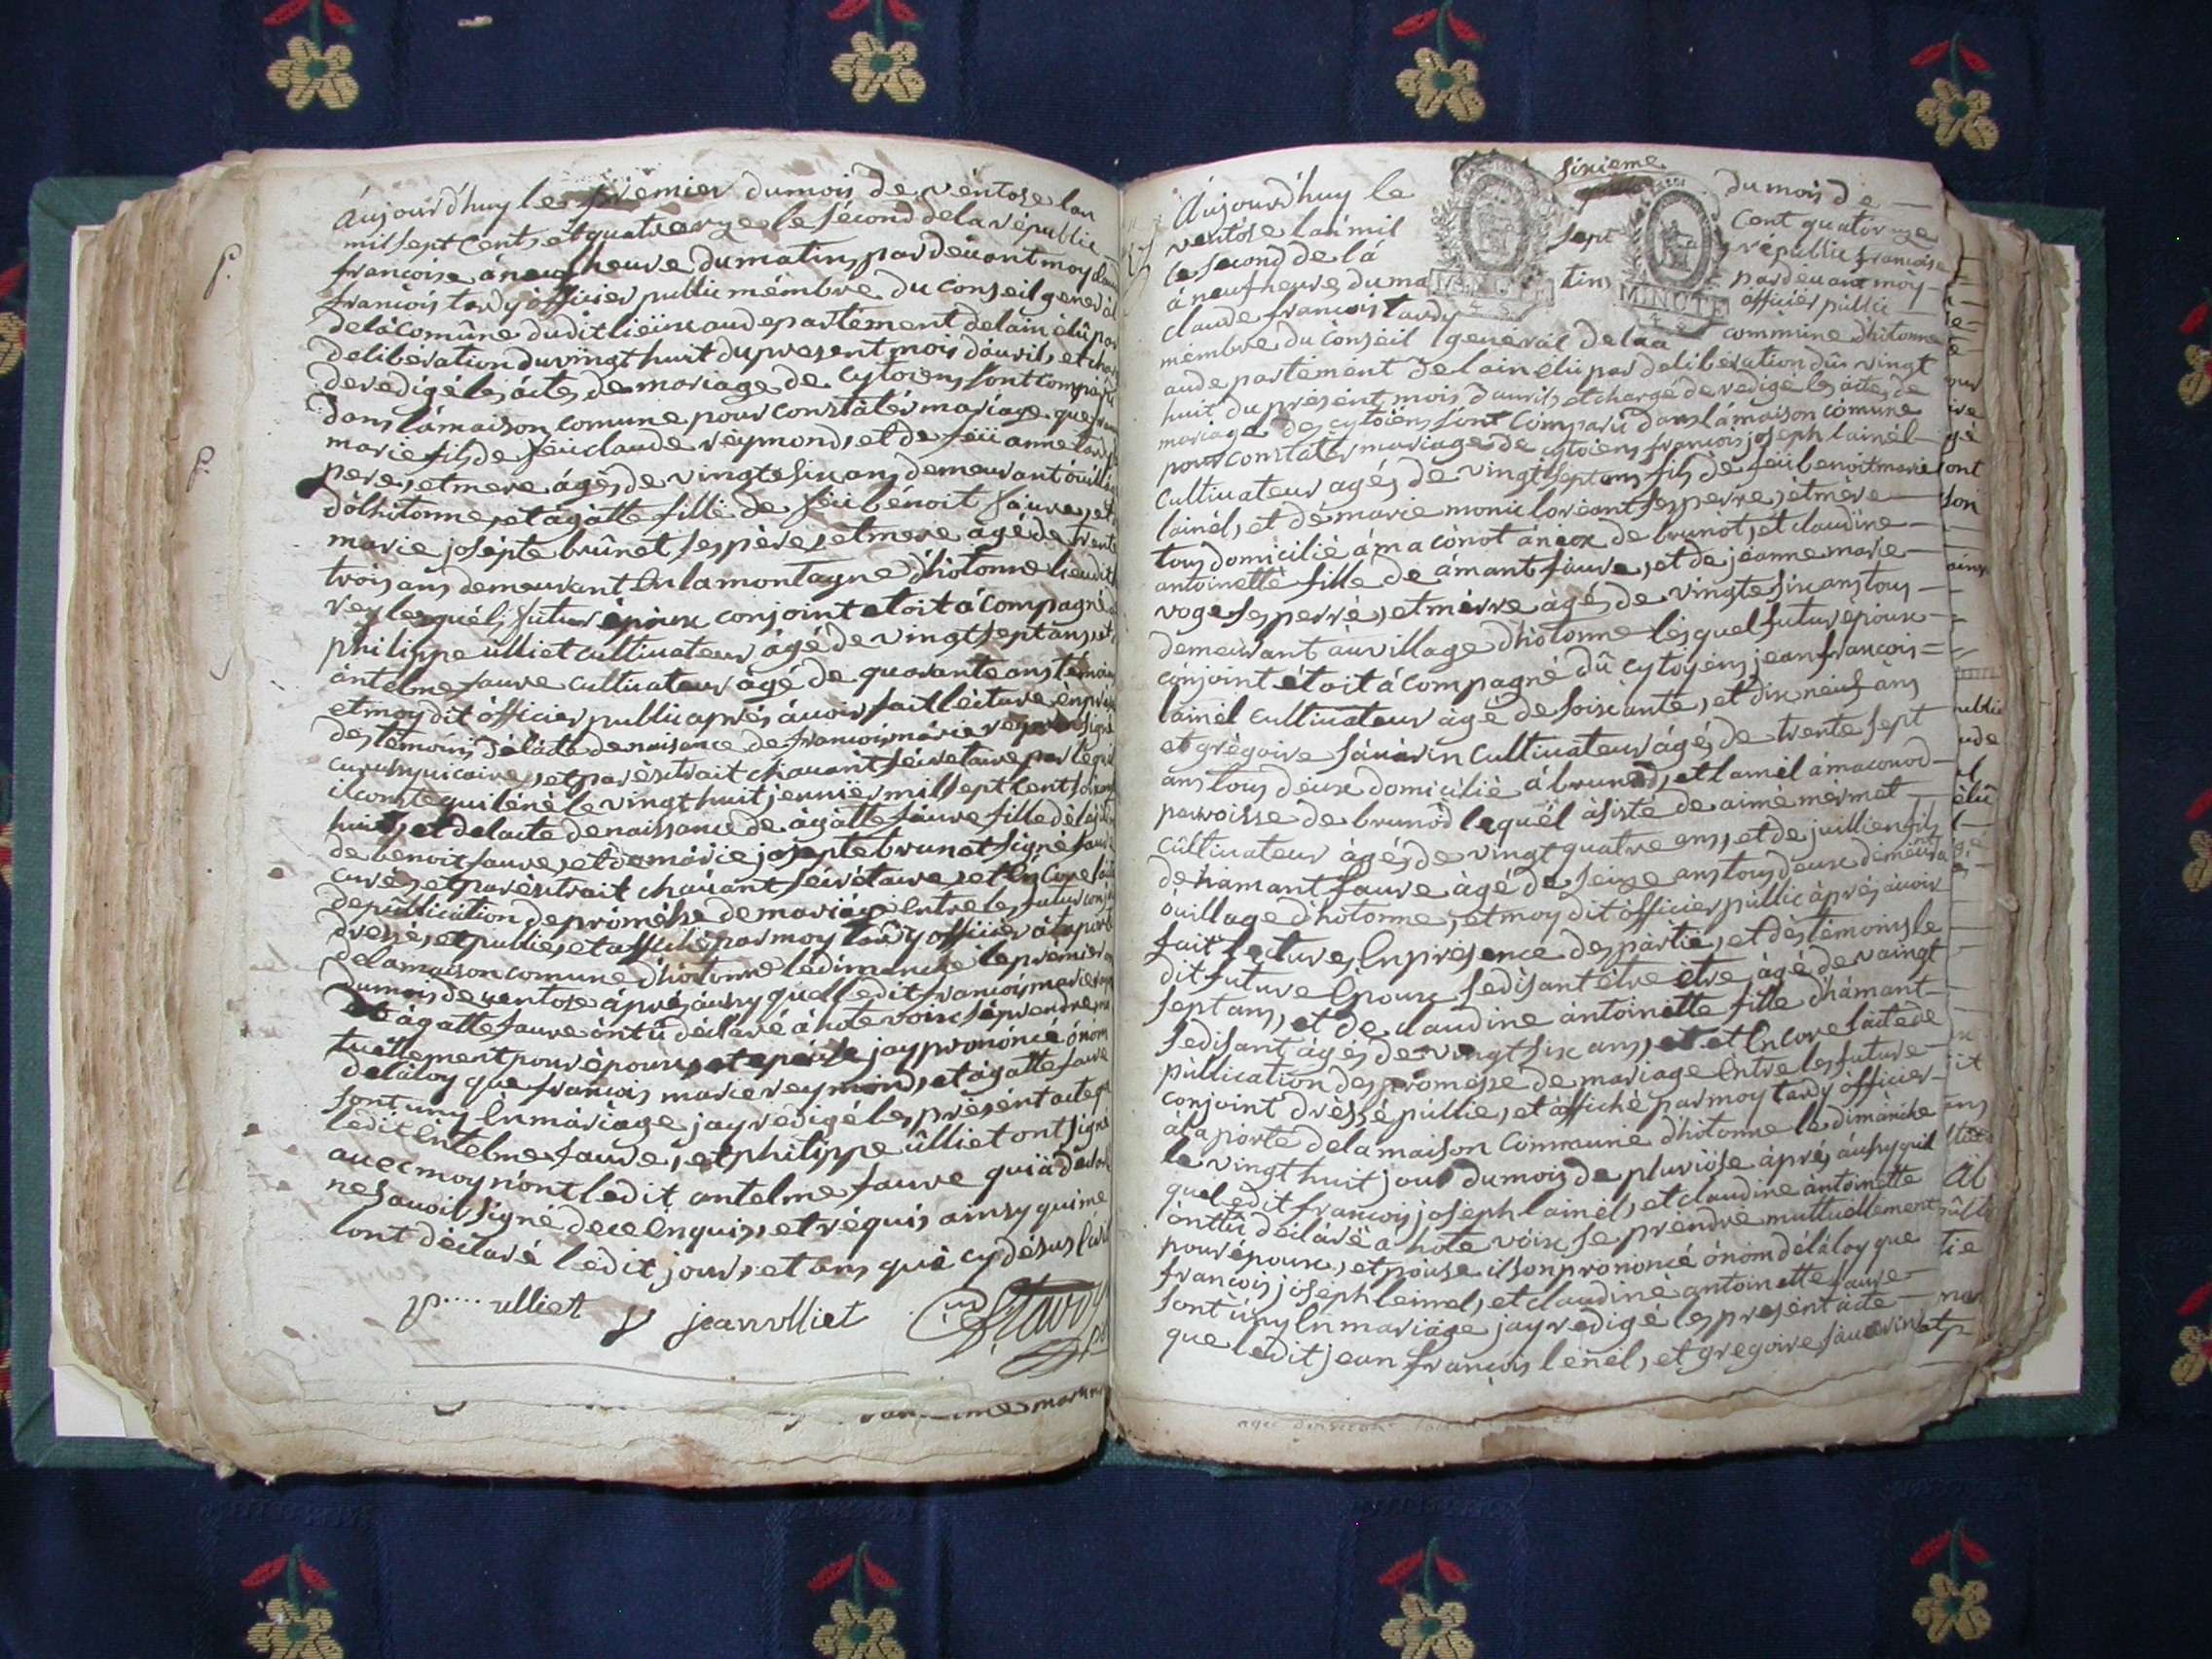 Aujourd'huy le premier du mois de ventose lan
mil sept Cents et quatre onze le sécond de la républic
francoise à neuf heure du matins par devant moy
françois tardy officier public mémbre du Conseil generàl
de la Comûne dudit lieu au departément de lain élû par
deliberation du vingt huit du present mois dàuvril, et
de redigé les àctes de mariage de Cytoiens sont
dans lámaison comune pour constâter mariage que
marie fils de feü claude reymond, et de feüe anne
pere, et mere ágés de vingt e six ans demeurant
d'hotonne, et ágàtte fille de feü benoit fàure, et
marie josépte brûnet ses père, et mere agé de trente
trois ans demeurant En la montagne d'hotonne lieudit
rey lesquéls futur époux conjoint etoit à Compagné
philippe ûlliet cultivateur ágé de vingt sept ans, et
ántelme faure cultivateur àgé de quarante ans témoin
et moy dit officier public aprés ávoir fait lècture en
des témoins délàcte de naisance de françois màrie
curé vicaire, et par èxtrait chavant sécretaire par
il conste qui léné le vingt huit jenvier mill sept Cent
huit, et de lacte de naissance de ágatte fàure fille
de benoit faure, et de màrie josepte brunet signé
curé, et par èxtrait chavant sécrétaire, et En Core
de públication de promésse de mariàge Entre les futur
dressé, et publié, et affiché par moy tardy officier à la porte
de la maison comune d'hotonne lé dimanche le prémier
du mois de ventose àprés àvsy que ledit francois marie
et ágatte faure ont ü déclaré à hote voix sé prendre
tuellement pour épouux, et epouse jay prononcé ó nom
de la loy que françois marie reymond, et ágatte faure
sont uny En màriage jay redigé les présént acte que
ledit Entelme faure, et philippe ûlliet ont signé
avec moy n'ont ledit antelme faure qui à déclaré
ne savoir signé de ce Enquis, et réquis ainsy qui me
lont déclaré ledit jour, et ans que cy désus
p.... ulliet jean vlliet tardy
Aujourd'huy le sixieme du mois de
ventôse lan mil sept Cent quatorze
le second de là républic francoise
à neuf heure, du matins par devant moy
claude francois tardy officier públic
mémbre du cònséil genéràl de la commûne d'hotonne
au departément de lain élû par deliberation dû vingt
huit du présent mois d'avril, et chargé de redigé les àctes de
mariage des cytoiens sont Comparû dans lámaison cómune
pour constater mariage de cytoiens françois joseph lainél
cultivateur agés de vingt sept ans fils de feü benoit marie
lainél, et dé marie monic loréant ses perre, et mère
tous domicilié à maconot anèxe de brunot, et claudine
antoinette fille de ámant faure, et de jéanne marie
voge ses perré, et mérre àgés de vingt e six ans tous
demeurant àu village d'hotonne lesquel futur époux
conjoint étoit à Compagné dû cytoyéns jean françois
lainél cultivateur ágé de soixante, et dix neuf àns
et grègoire sàvàrin cultivateur àgés de trente sept
ans tous deux domicilié à brunod, et lainél à maconod
paroisse de brunod lequél àsisté de aimé mermet
cûltivateur àgés de vingt quatre ans, et de juillien fils
d'hamant faure àgé de seuze ans tous deux demeurà
ò village d'hotonne, et moy dit officier públic àprés àvoir
fait lecture, En présence des partie, et dès témoins le
dit future Epoux se disant étre ètre ágé de vaingt
sept ans, et de claudine àntoinette fille d'hámant
se disant ágés de vingt six ans, et et En core lacte de
públication des promésse de mariage Entre les future
conjoint dréssé públié, et àffiché par moy tardy òfficier
à la pórte de la maison Commune d'hotonne le dimànche
le vingt huit jour du mois de pluviòse àprés àvsy quil
que ledit françois joséph lainél, et claudine àntoinette
ont tü déclàré à hote vòix se prendre muttuellement
pour épouux, et pouse ils son prononcé ó nom dé là loy que
françois joseph leinel, et claudiné antoinette faure
sont ùny En mariage jay redigé les presént àcte
que ledit jean françois lénél, et gregoire sàuarin